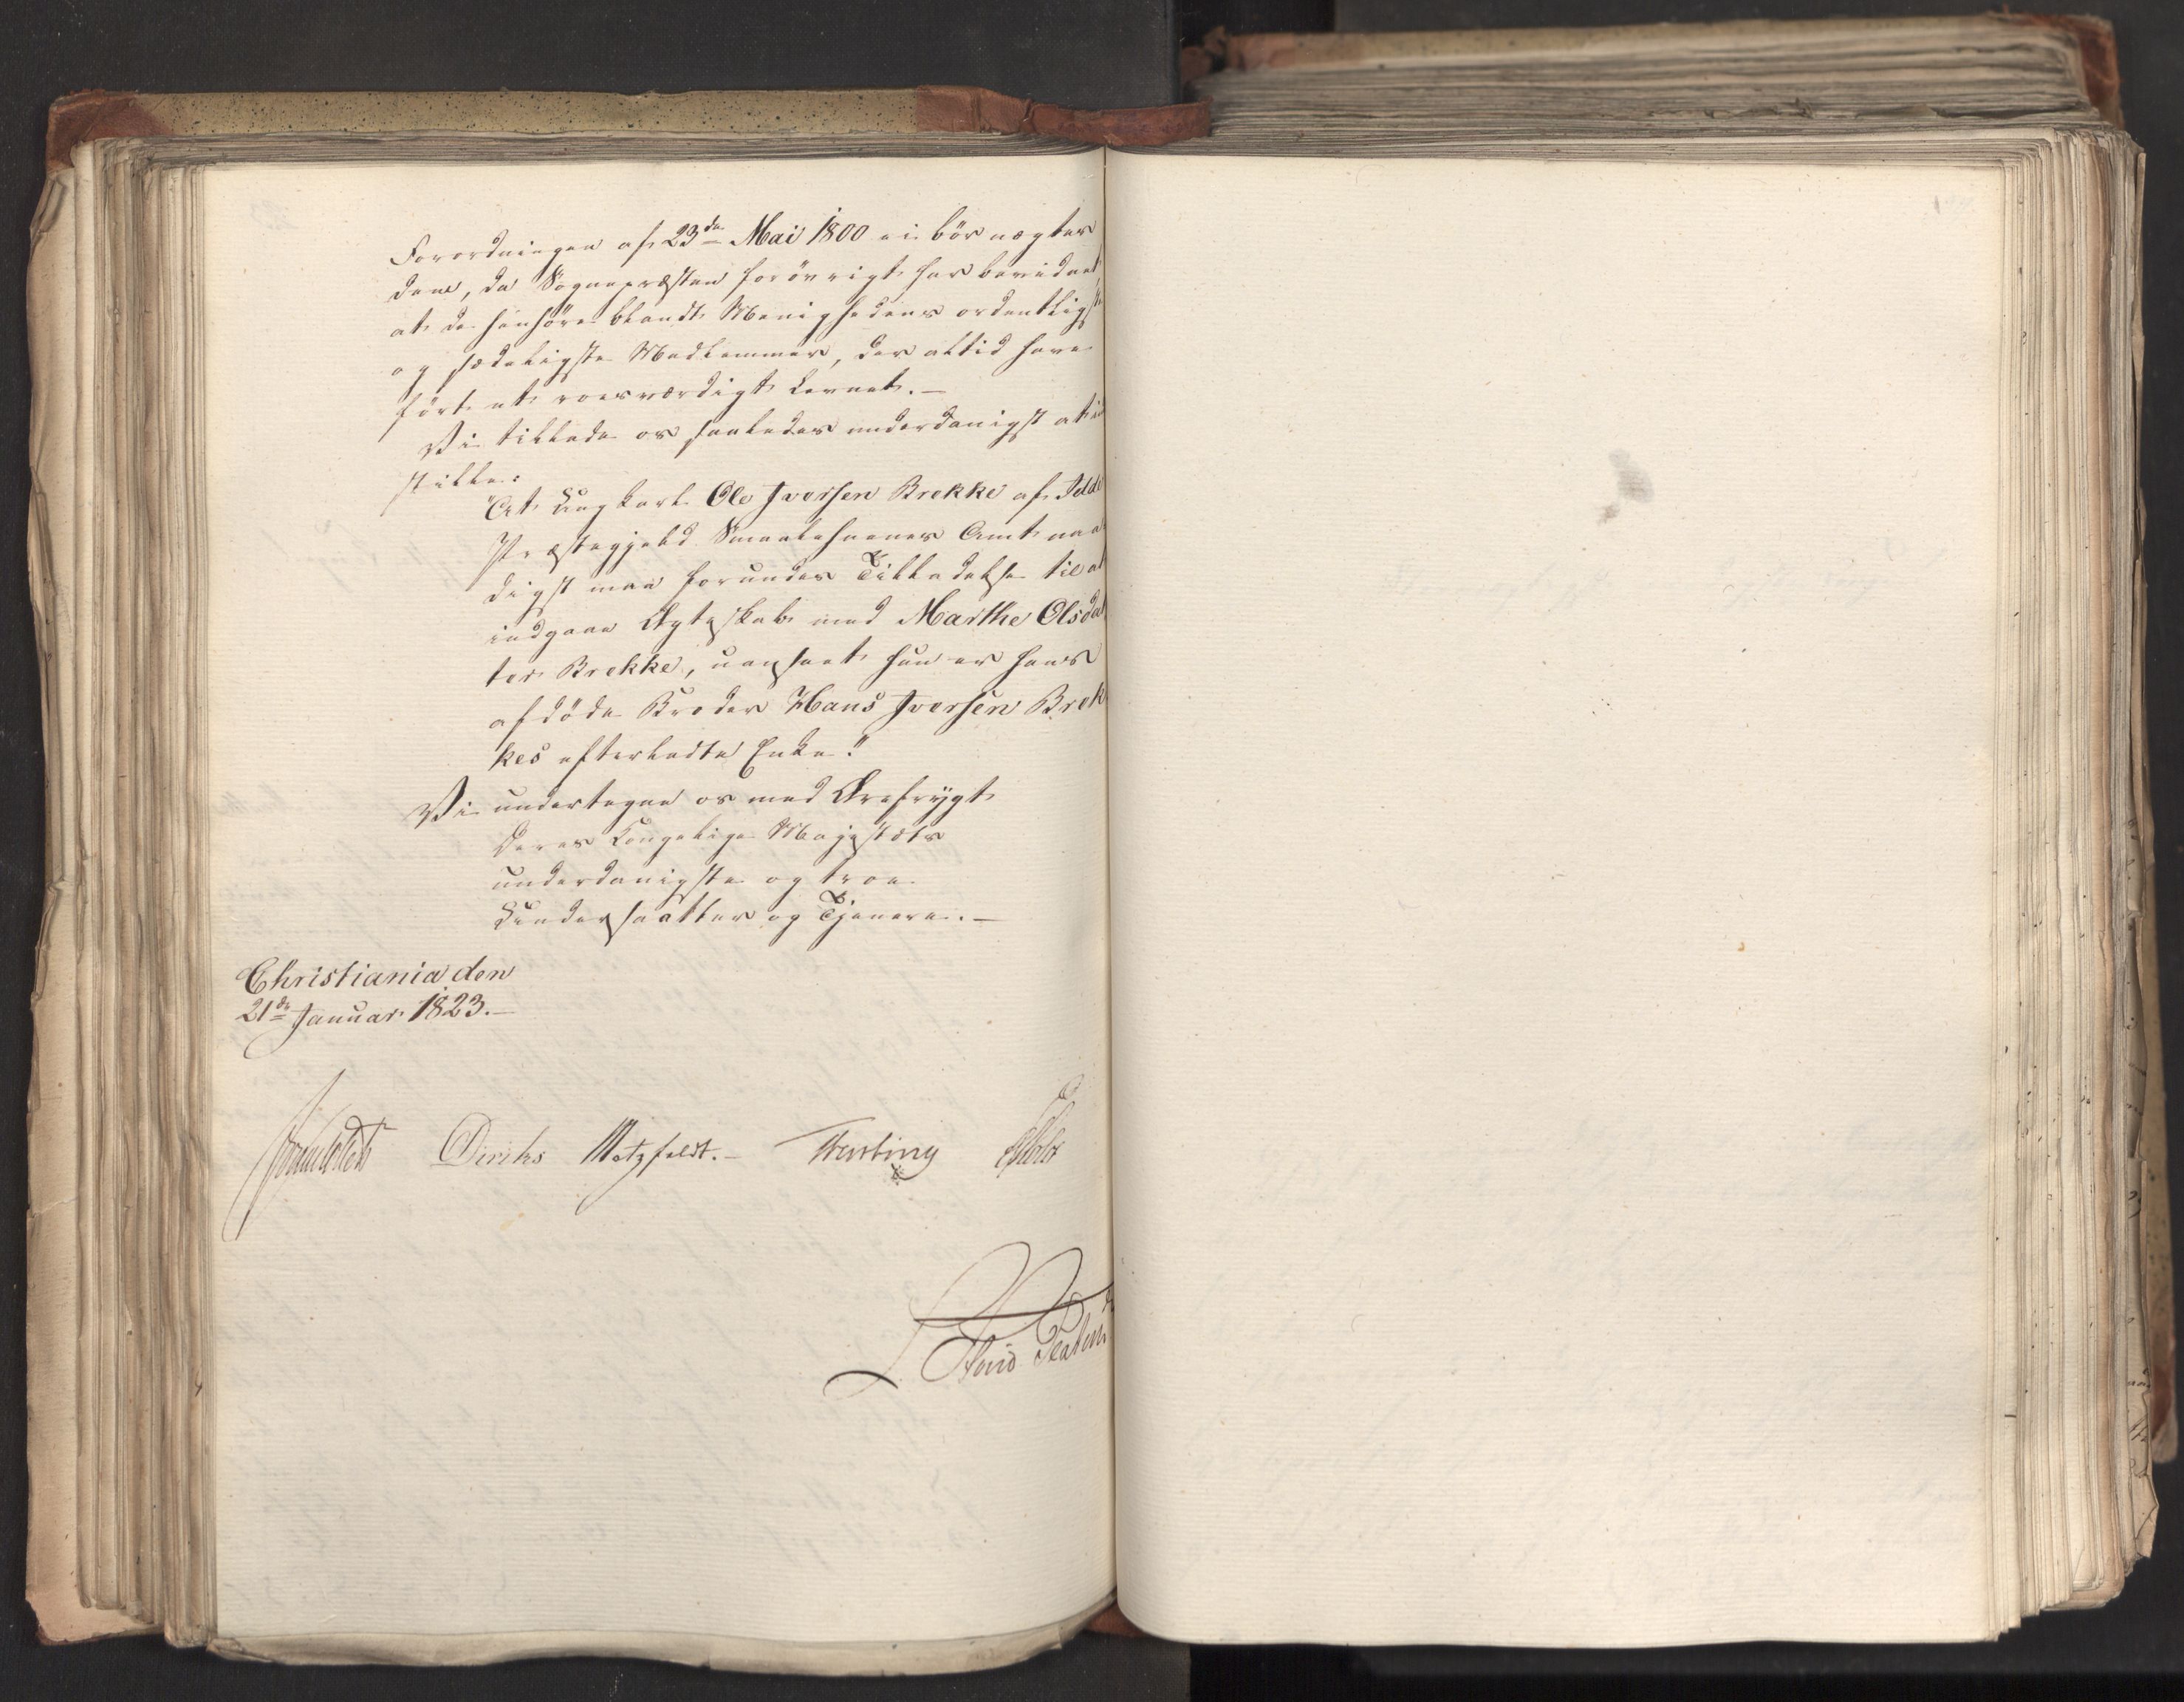 Forordningen af 23de Mai 1800 ei bör nægtes
dem, da Sognepræsten forövrigt har bevidnet,
at de henhöre blandt Menighedens ordentligste
og sædeligste Medlemmer, der altid have
fört et roesværdigt Levnet.—
Vi tillade os saaledes underdanigst at ind
stille:
"At Ungkarl Ole Iversen Brekke af Idde
Præstegjeld Smaalehnenes Amt naa
digst maa forundes Tilladelse til at
indgaae Ægteskab med Marthe Olsdat
ter Brekke, uanseet hun er hans
afdöde Broder Hans Iversen Brek
kes efterladte Enke."
Vi undertegne os med Ærefrygt
Deres Kongelige Majestæts
underdanigste og troe
Undersaatter og Tjenere.—
Christiania den
21de Januar 1823.—
Diriks Motzfeldt.— Treschow Holst